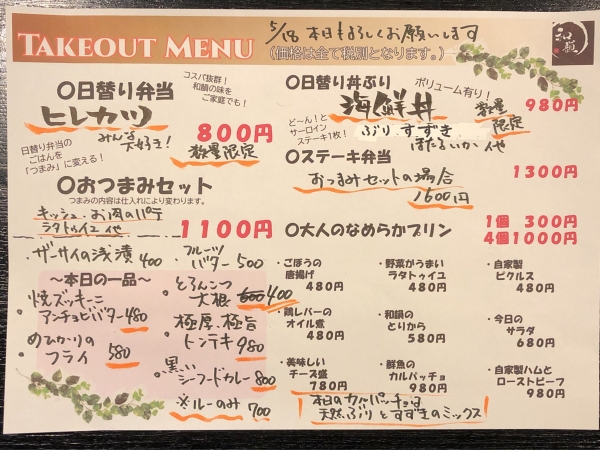 TAKEOUT MENU
5/18 本日もよろしくお願いします
(価格は全て税別となります。)
和韻
〇日替り弁当
コスパ抜群!
和韻の味を
ご家庭でも!
ヒレカツ
みんな
大好き!
800円
数量限定
日替り弁当の
ごはんを
「つまみ」に変える!
〇おつまみセット
つまみの内容は仕入れにより変わります。
キッシュ・お肉のパテ
ラタトゥイユ 他
1100円
〇日替り丼ぶり
ボリューム有り!
海鮮丼
数量
限定
980円
ぶり すずき
ほたるいか 他
ど~ん!と
サーロイン
ステーキ1枚!
〇ステーキ弁当
1300円
おつまみセットの場合
1600円
〇大人のなめらかプリン
1個 300円
4個1000円
・ザーサイの浅漬 400
・フルーツ
バター 500
~本日の一品~
・焼ズッキーニ
アンチョビバター 480
・めひかりの
フライ 580
・とろんこつ
大根 600 400
・極厚、極旨
トンテキ 980
・黒い
シーフードカレー 800
※ルーのみ 700
・ごぼうの
唐揚げ
480円
・野菜がうまい
ラタトゥイユ
480円
・自家製
ピクルス
480円
・鶏レバーの
オイル煮
480円
・和韻の
とりから
580円
・今日の
サラダ
680円
・美味しい
チーズ盛
780円
・鮮魚の
カルパッチョ
980円
・自家製ハムと
ローストビーフ
980円
本日のカルパッチョは
天然ぶりとすずきのミックス